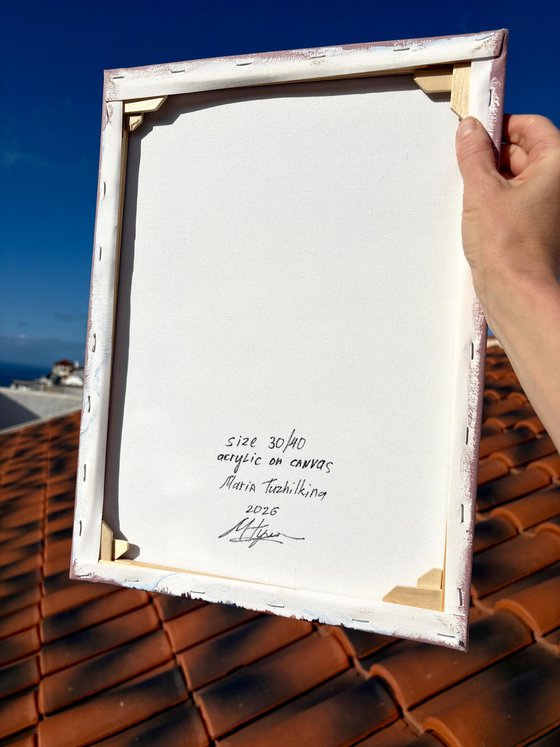 size 30/40
acrylic on canvas
Maria Tuzhilkina
2026